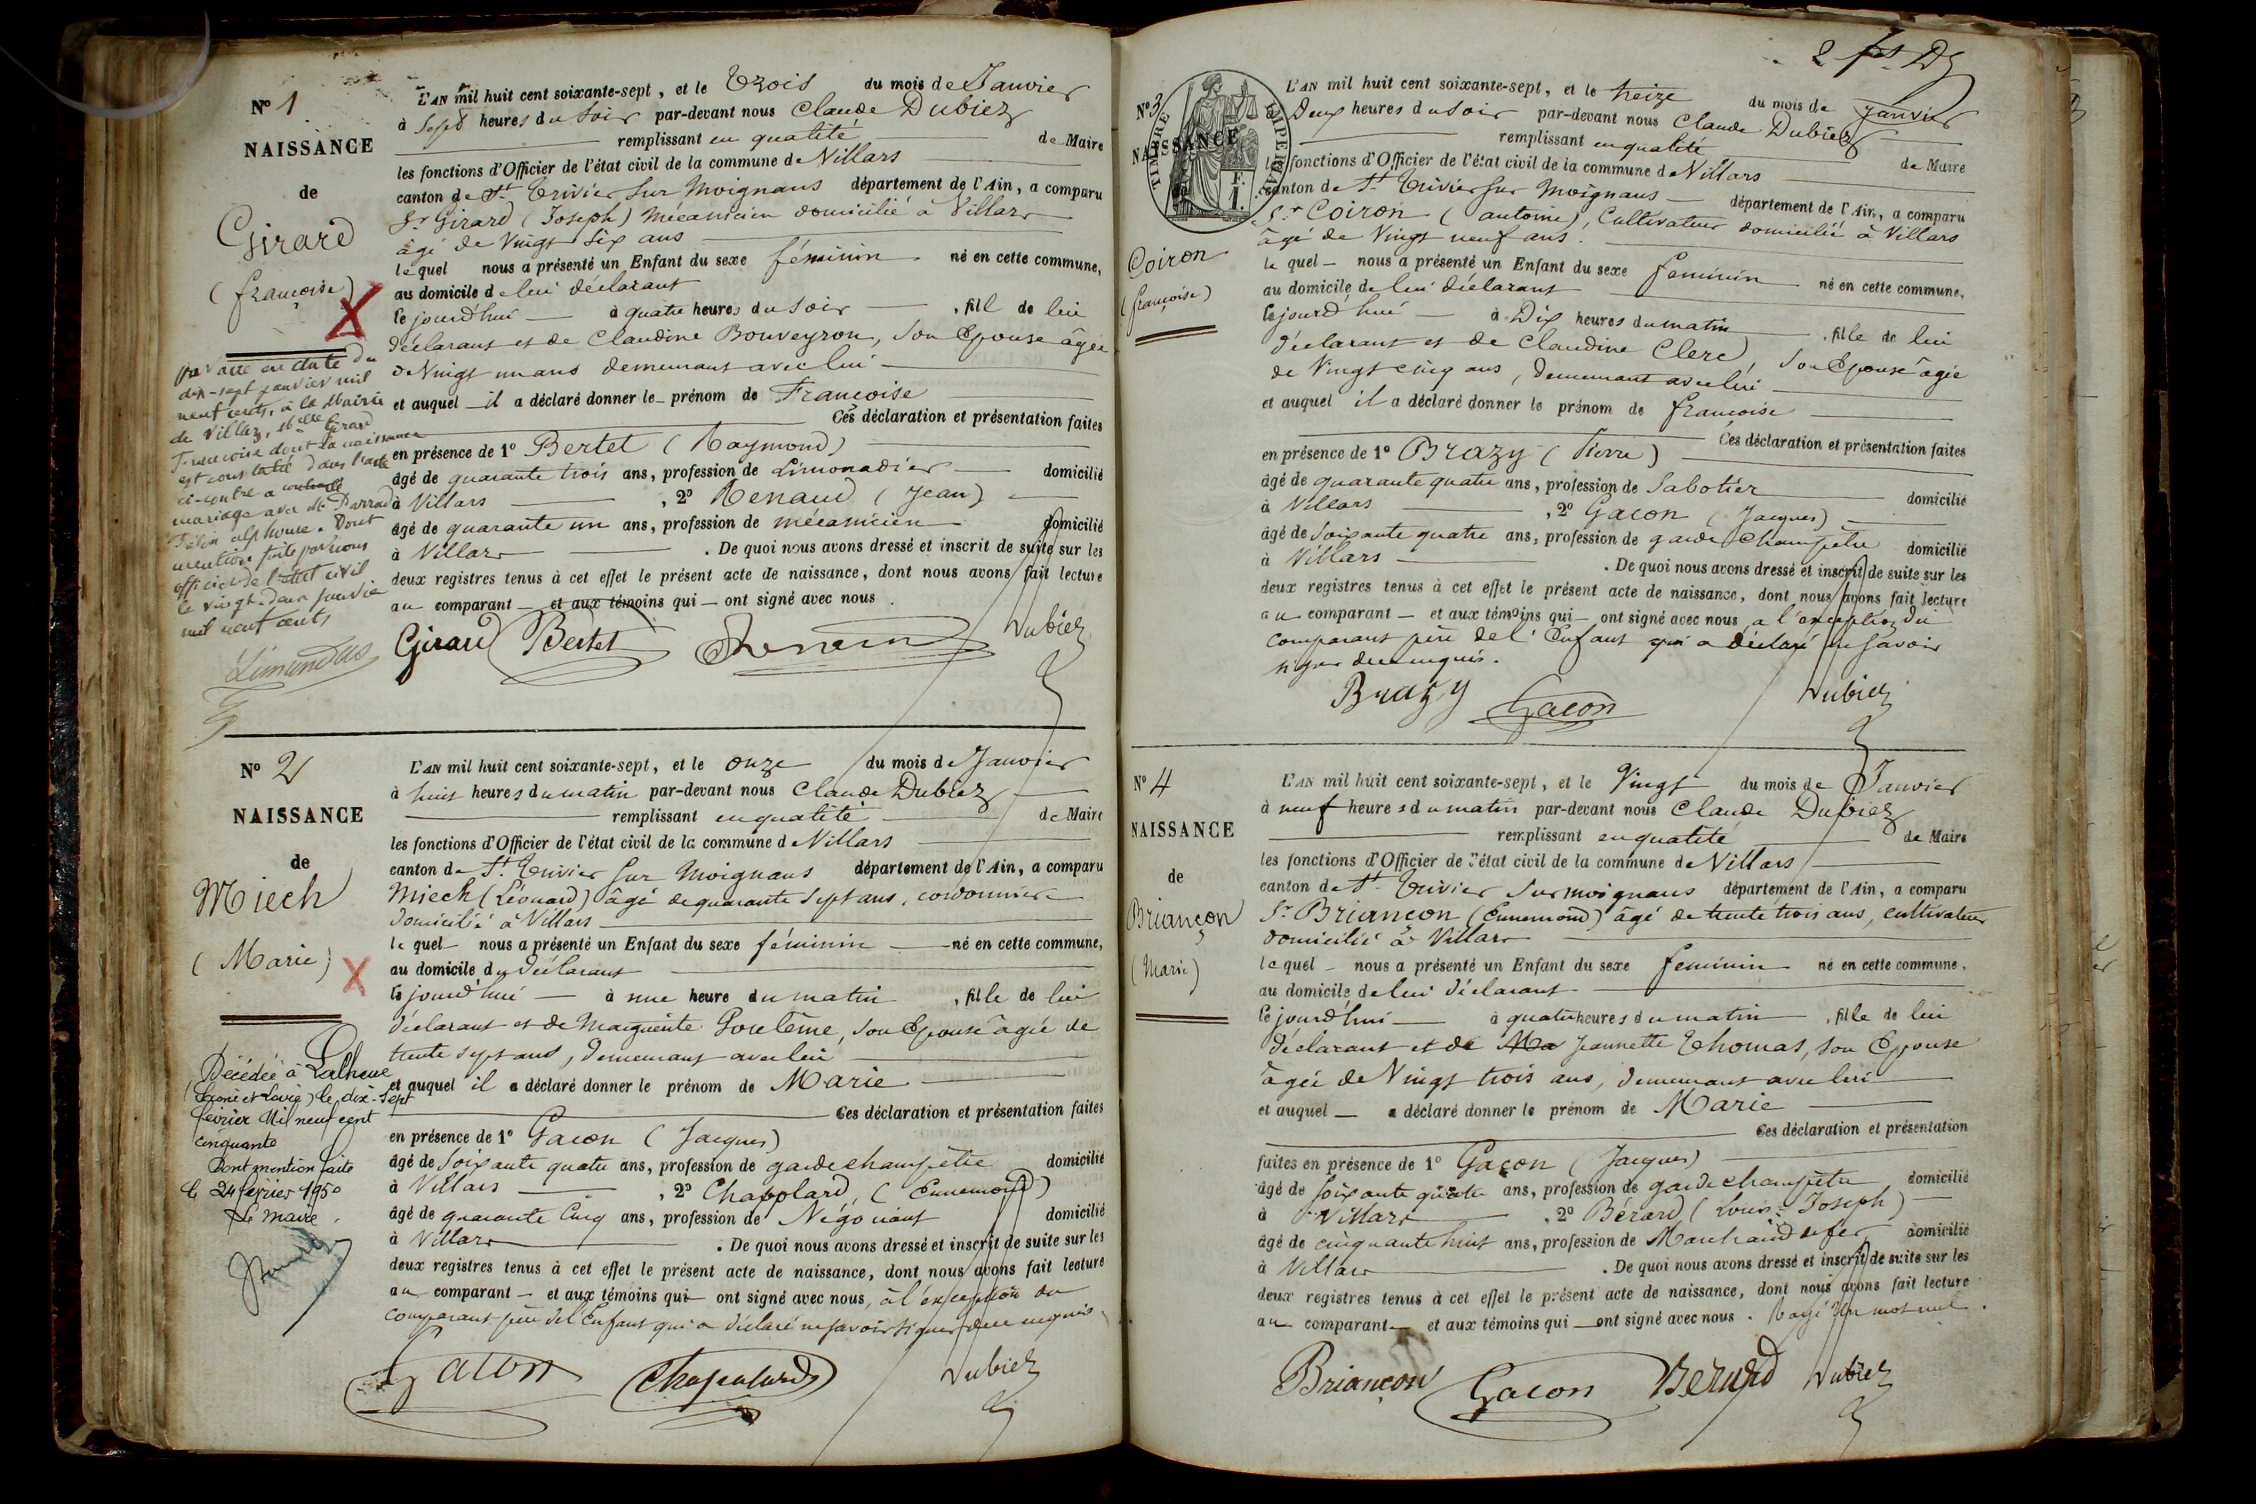 N° 1
NAISSANCE
de
Girard
(françoise)
X
par acte en date du
dix-sept janvier mil
neuf cents, à la Mairie
de Villars, Melle Girard
Francoise dont la naissance
est constatée dans l'acte
ci-contre a contracté
mariage avec Mr Parrad
alphonse. Dont
mention faite par nous
officier de l'état civil
le vingt-deux janvier
mil neuf cents
L'AN mil huit cent soixante-sept, et le Trois du mois de Janvier
à Sept heures du Soir par-devant nous Claude Dubiez
remplissant en qualité de Maire
les fonctions d'Officier de l'état civil de la commune de Villars
canton de St Trivier Sur Moignans département de l'Ain, a comparu
Sr Girard (Joseph) Mécanicien domicilié à Villars
âgé de Vingt Six ans
lequel nous a présenté un Enfant du sexe féminin né en cette commune,
au domicile de lui déclarant
le jourd'hui à quatre heures du Soir, fil de lui
déclarant et de Claudine Bouveyron, Son Epouse âgée
de Vingt un ans demeurant avec lui
et auquel il a déclaré donner le prénom de Francoise
Ces déclaration et présentation faites
en présence de 1° Bertet (Raymond)
âgé de quarante trois ans, profession de Limonadier domicilié
à Villars, 2° Renaud (Jean)
âgé de quarante un ans, profession de mécanicien domicilié
à Villars. De quoi nous avons dressé et inscrit de suite sur les
deux registres tenus à cet effet le présent acte de naissance, dont nous avons fait lecture
au comparant et aux témoins qui ont signé avec nous
Girard Bertet Dubiez
N° 2
NAISSANCE
de
Miech
(Marie)
X
Décédée à Lalheue
(Saone et Loire) le dix-sept
février Mil neuf cent
cinquante
Dont mention faite
le 24 février 1950
Le maire
L'AN mil huit cent soixante-sept, et le onze du mois de Janvier
à huit heures du matin par-devant nous Claude Dubiez
remplissant en qualité de Maire
les fonctions d'Officier de l'état civil de la commune de Villars
canton de St Trivier Sur Moignans département de l'Ain, a comparu
Miech (Léonard) âgé de quarante sept ans, cordonnier
domicilié à Villars
lequel nous a présenté un Enfant du sexe féminin né en cette commune,
au domicile du déclarant
le jourd'hui à une heure du matin, fille de lui
déclarant et de Marguerite, Son Epouse âgée de
trente sept ans, demeurant avec lui
et auquel il a déclaré donner le prénom de Marie
Ces déclaration et présentation faites
en présence de 1° Gacon (Jacques)
âgé de Soixante quatre ans, profession de garde champêtre domicilié
à Villars, 2° Chapolard, (Ennemond)
âgé de quarante Cinq ans, profession de Négociant domicilié
à Villars. De quoi nous avons dressé et inscrit de suite sur les
deux registres tenus à cet effet le présent acte de naissance, dont nous avons fait lecture
au comparant et aux témoins qui ont signé avec nous, à l'exception du
comparant père de l'Enfant qui a déclaré ne savoir signer de ce requis
Gacon Chapolard Dubiez
2 fet Dz
N° 3
NAISSANCE
TIMBRE IMPERIAL
Coiron
(françoise)
L'AN mil huit cent soixante-sept, et le treize du mois de Janvier
Deux heures du Soir par-devant nous Claude Dubiez
remplissant en qualité de Maire
les fonctions d'Officier de l'état civil de la commune de Villars
canton de St Trivier Sur Moignans département de l'Ain, a comparu
Sr Coiron (antoine), Cultivateur domicilié à Villars
âgé de Vingt neuf ans.
lequel nous a présenté un Enfant du sexe feminin né en cette commune,
au domicile de lui déclarant
le jourd'hui à Dix heures du matin, fille de lui
déclarant et de Claudine Clerc, Son Epouse âgée
de Vingt cinq ans, demeurant avec lui
et auquel il a déclaré donner le prénom de francoise
Ces déclaration et présentation faites
en présence de 1° Brazy (Pierre)
âgé de quarante quatre ans, profession de Sabotier domicilié
à Villars, 2° Gacon (Jacques)
âgé de Soixante quatre ans, profession de garde champêtre domicilié
à Villars. De quoi nous avons dressé et inscrit de suite sur les
deux registres tenus à cet effet le présent acte de naissance, dont nous avons fait lecture
au comparant et aux témoins qui ont signé avec nous a l'exception du
comparant père de l'Enfant qui a déclaré ne savoir
signer de ce requis.
Brazy Gacon Dubiez
N° 4
NAISSANCE
de
Briançon
(Marie)
L'AN mil huit cent soixante-sept, et le Vingt du mois de Janvier
à neuf heures du matin par-devant nous Claude Dubiez
remplissant en qualité de Maire
les fonctions d'Officier de l'état civil de la commune de Villars
canton de St Trivier Sur moignans département de l'Ain, a comparu
Sr Briançon (Ennemond) âgé de trente trois ans, cultivateur
domicilié à Villars
lequel nous a présenté un Enfant du sexe feminin né en cette commune,
au domicile de lui déclarant
le jourd'hui à quatre heures du matin, fille de lui
déclarant et de Ma Jeannette Thomas, son Epouse
âgée de Vingt trois ans, demeurant avec lui
et auquel a déclaré donner le prénom de Marie
Ces déclaration et présentation
faites en présence de 1° Gaçon (Jacques)
âgé de Soixante quatre ans, profession de garde champêtre domicilié
à Villars, 2° Bérard (Louis-Joseph)
âgé de cinquante huit ans, profession de Marchand de fer domicilié
à Villars. De quoi nous avons dressé et inscrit de suite sur les
deux registres tenus à cet effet le présent acte de naissance, dont nous avons fait lecture
au comparant et aux témoins qui ont signé avec nous. Rayé un mot nul.
Briançon Gacon Berard Dubiez